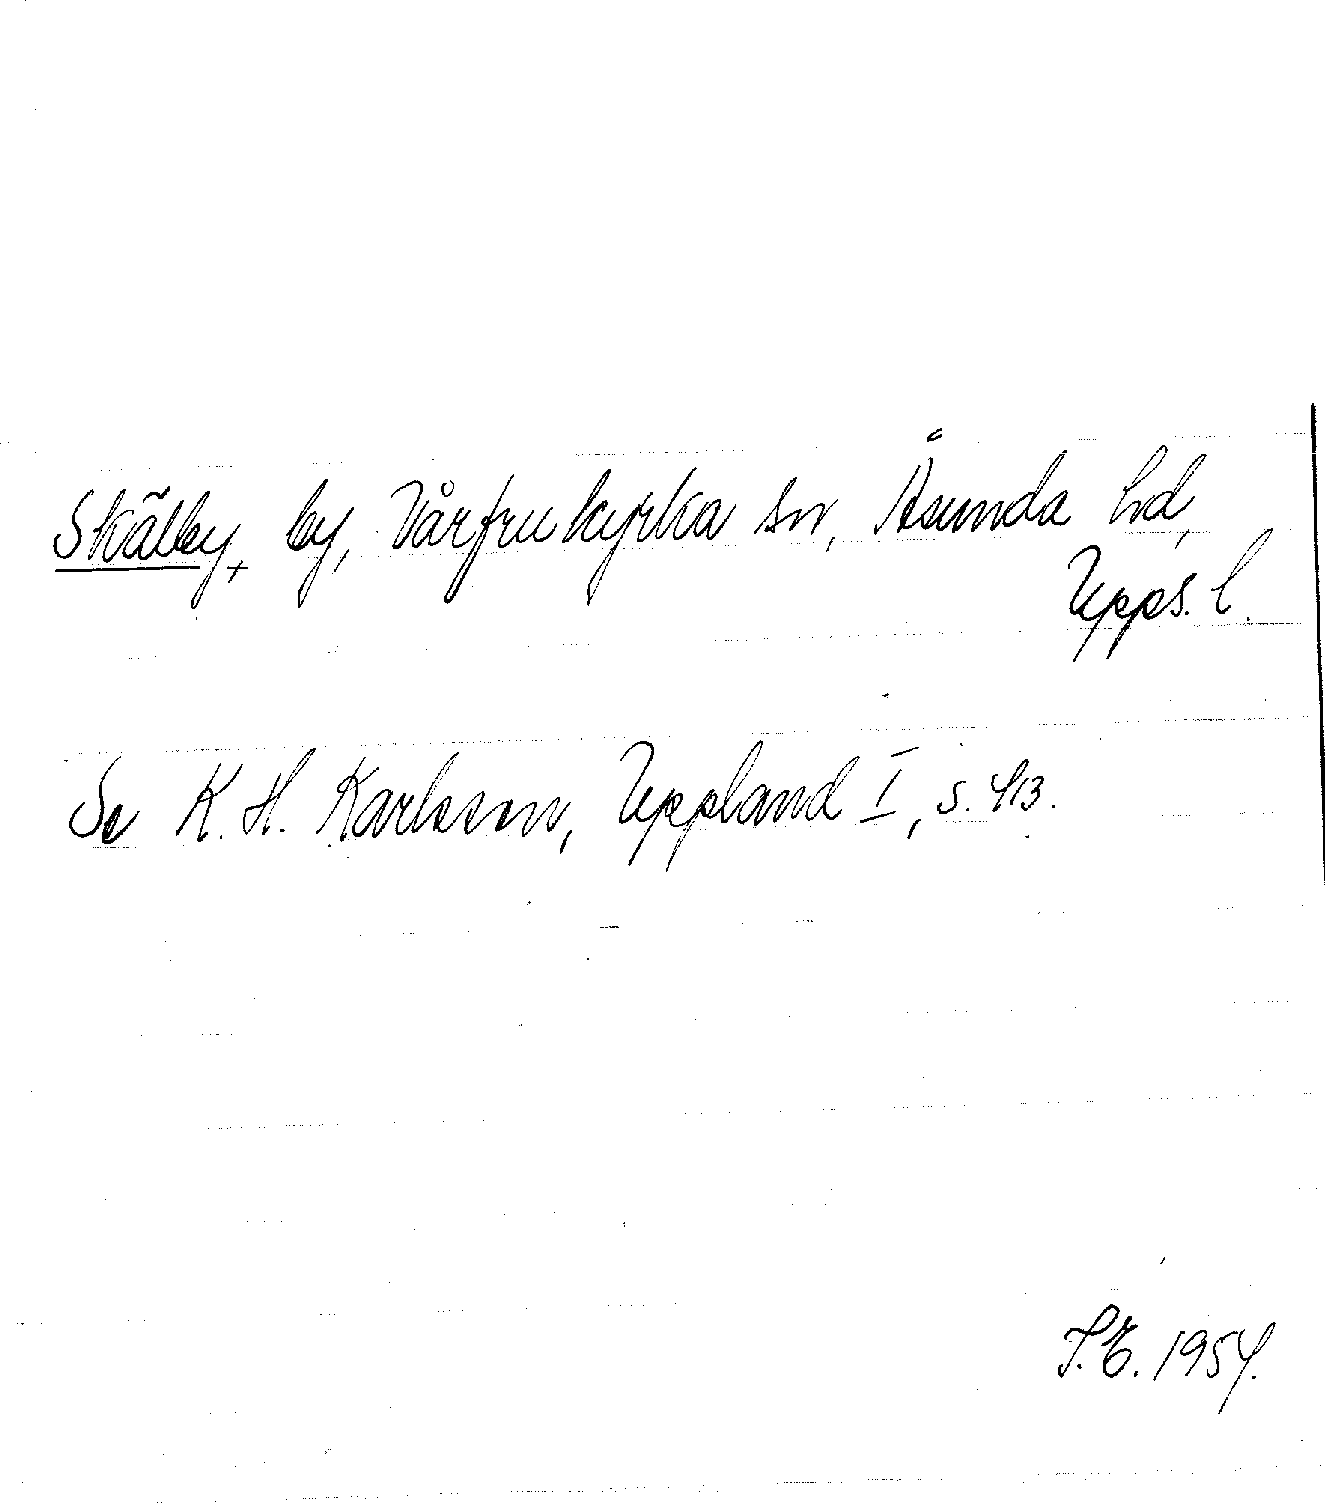 Skälby, by, Vårfrukyrka sn, Åsunda hd,
Upps. l.
Se K. H. Karlsson, Uppland I, s. 413.
S.E. 1954.